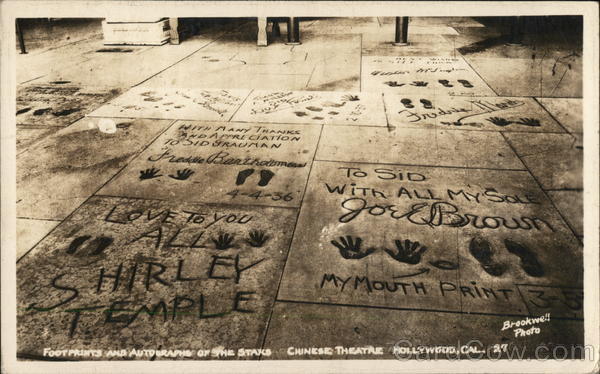 WITH MANY THANKS
AND APPRECIATION
TO SID GRAUMAN
Freddie Bartholomew
4-4-36
Fredric March
TO SID
WITH ALL MY SOLE
Joe E Brown
MY MOUTH PRINT
3-5
LOVE TO YOU
ALL
SHIRLEY
TEMPLE
Brookwell
Photo
FOOTPRINTS AND AUTOGRAPHS OF THE STARS CHINESE THEATRE HOLLYWOOD, CAL. 27
CardCow.com